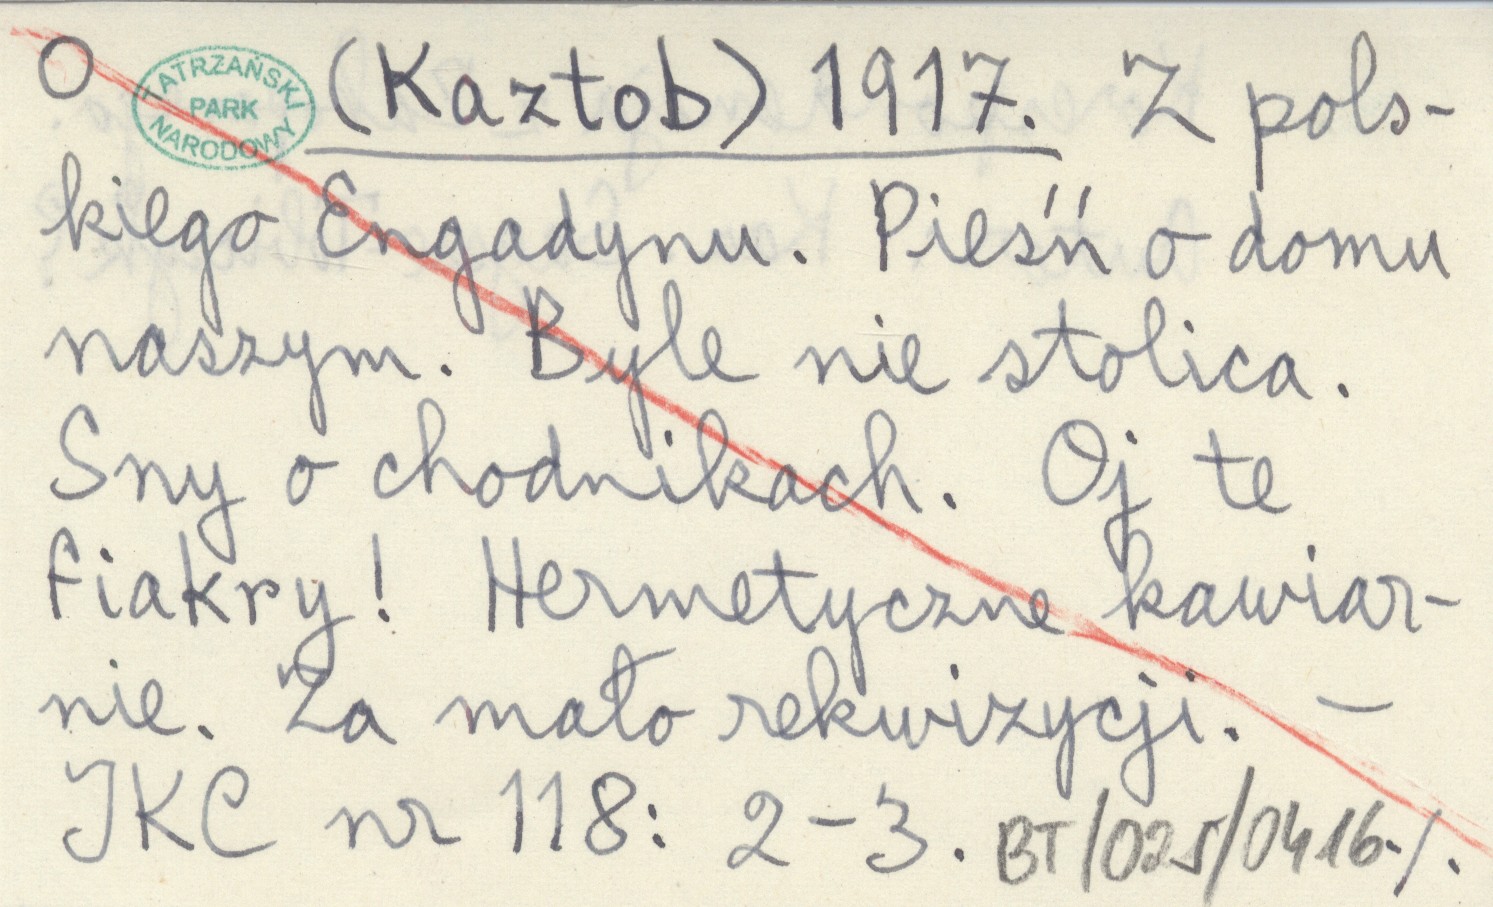 O TATRZAŃSKI PARK NARODOWY (Kaztob) 1917. Z pols-
kiego Engadynu. Pieśń o domu
naszym. Byle nie stolica.
Sny o chodnikach. Oj te
fiakry! Hermetyczne kawiar-
nie. Za mało rekwizycji. –
JKC nr 118: 2–3. BT/025/0416./.